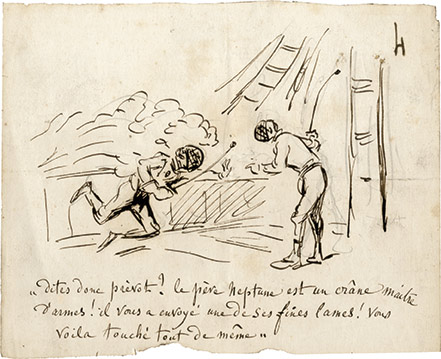 H
„ dites donc prévot ? le père Neptune est un crâne maître
d'armes ! il vous a envoyé une de ses fines lames ! vous
voila touché tout de même „